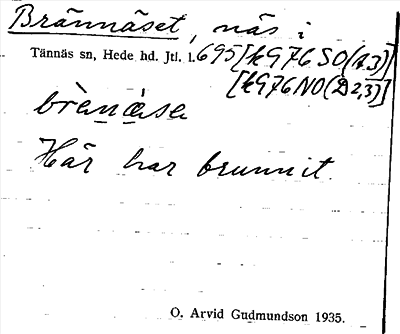 Brännäset, näs i
Tännäs sn, Hede hd. Jtl. l. 695 [k976 SO(1.3)]
[k976 NO(D2,3)]
brènä̀se
Här har brunnit.
O. Arvid Gudmundson 1935.